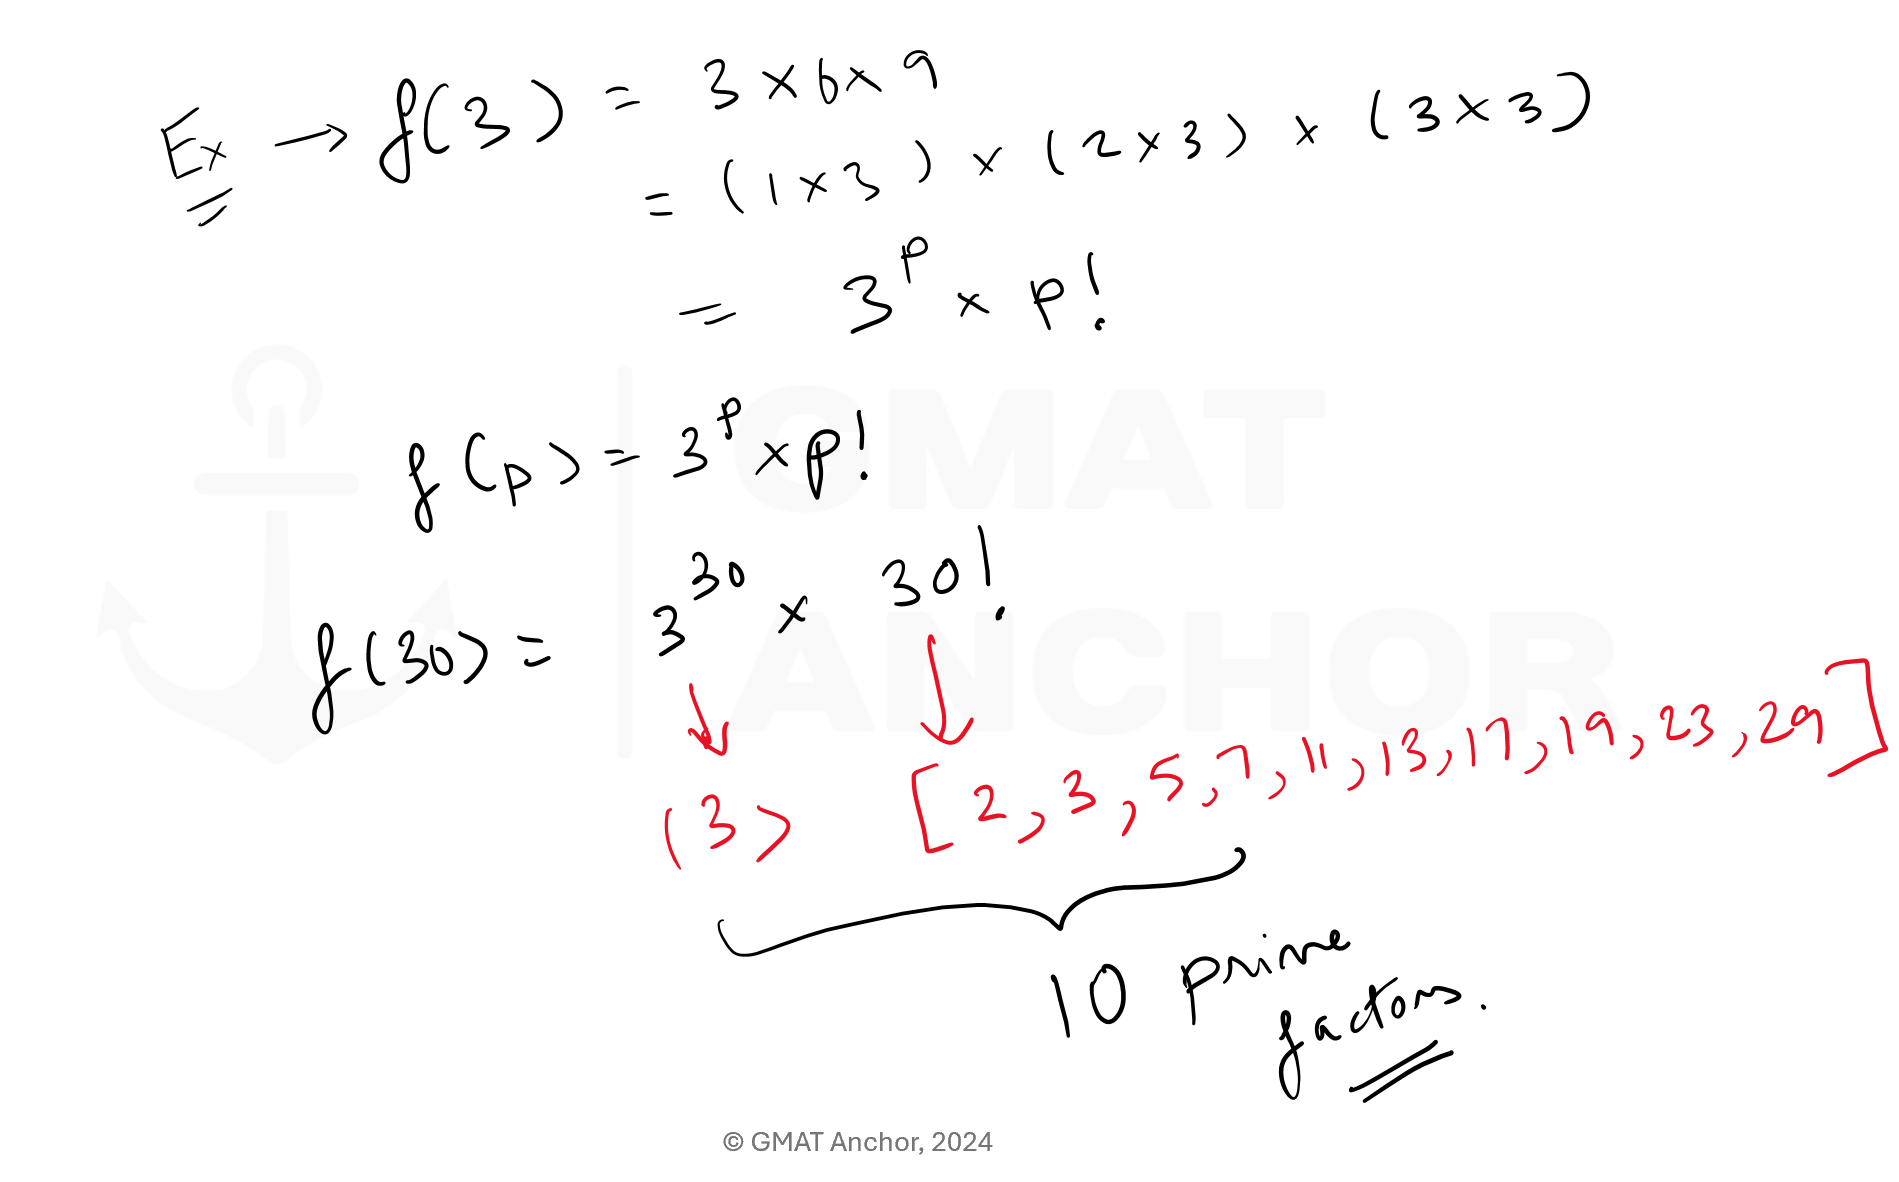 Ex → f(3) = 3 × 6 × 9
= (1×3) × (2×3) × (3×3)
= 3^p × p!
f(p) = 3^p × p!
f(30) = 3^30 × 30!
(3) [2, 3, 5, 7, 11, 13, 17, 19, 23, 29]
10 prime
factors.
GMAT
ANCHOR
© GMAT Anchor, 2024